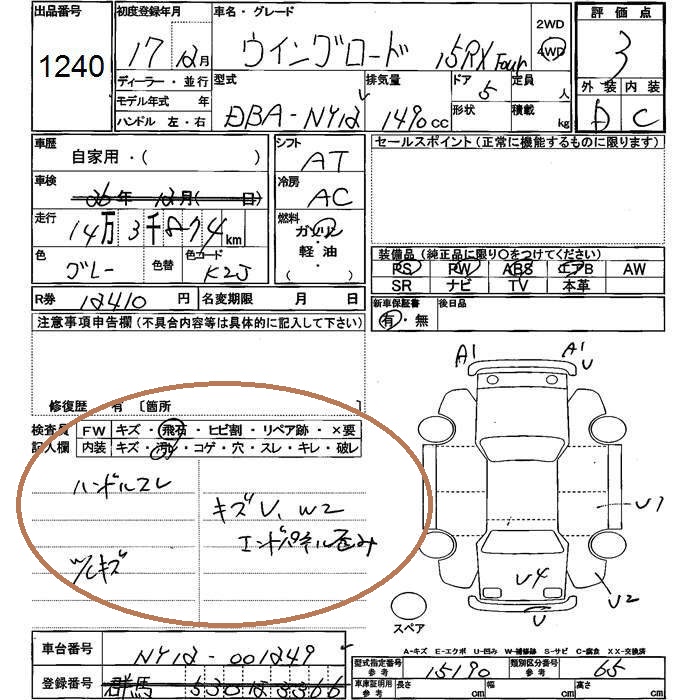 出品番号
1240
初度登録年月
17年12月
車名・グレード
ウイングロード 15RX Four
2WD
4WD
評価点
3
外装 内装
D C
ディーラー・並行
モデル年式 年
ハンドル 左・右
型式
DBA-NY12
排気量
1490cc
ドア
5
形状
定員
人
積載
kg
車歴
自家用・( )
車検
26年 12月( 日)
走行
14万3千874km
色
グレー
色替
色コード
K2J
シフト
AT
冷房
AC
燃料
ガソリン
軽油
( )
セールスポイント(正常に機能するものに限ります)
装備品(純正品に限り〇をつけてください)
PS PW ABS エアB AW
SR ナビ TV 本革
R券 12410円
名変期限 月 日
新車保証書
有・無
後日品
注意事項申告欄(不具合内容等は具体的に記入して下さい)
修復歴 有 [箇所 ]
検査員
記入欄
FW キズ・飛石・ヒビ割・リペア跡・×要
内装 キズ・汚レ・コゲ・穴・スレ・キレ・破レ
ハンドルスレ
キズU、W2
エンドパネル歪み
キズ
A1
A1
U
U1
U2
U4
U
スペア
A-キズ E-エクボ U-凹み W-補修跡 S-サビ C-腐食 XX-交換済
車台番号
NY12-001249
登録番号
群馬 530 12 3366
型式指定番号
参考
15190
類別区分番号
参考
65
車庫証明用
参考
長さ cm
幅 cm
高さ cm